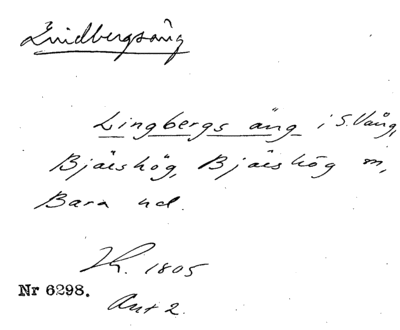 Lindbergsäng
Lingbergs äng i S. Vång,
Bjäershög, Bjäershög m,
Bara hd.
Th. 1805
Nr 6298.
Akt 2.